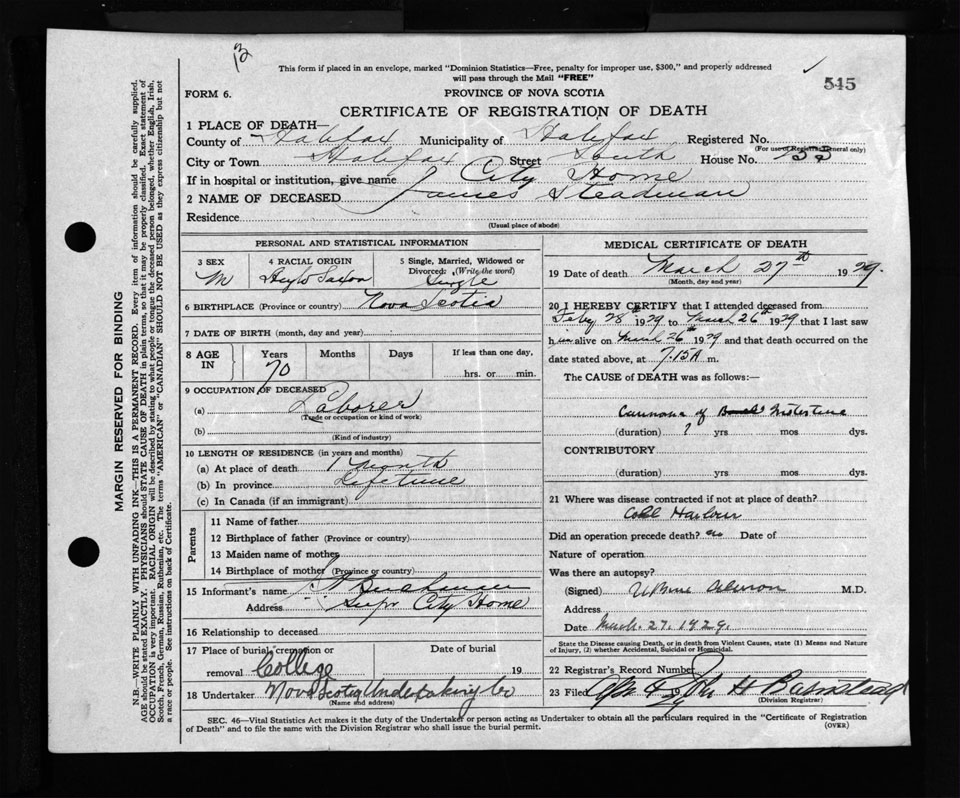 13
This form if placed in an envelope, marked "Dominion Statistics—Free, penalty for improper use, $300," and properly addressed
will pass through the Mail "FREE"
545
FORM 6.
PROVINCE OF NOVA SCOTIA
CERTIFICATE OF REGISTRATION OF DEATH
1 PLACE OF DEATH—
County of Halifax Municipality of Halifax Registered No.
(For use of Registrar General only)
City or Town Halifax Street South House No.
If in hospital or institution, give name City Home
2 NAME OF DECEASED James Steadman
Residence
(Usual place of abode)
MARGIN RESERVED FOR BINDING
N.B.—WRITE PLAINLY WITH UNFADING INK—THIS IS A PERMANENT RECORD. Every item of information should be carefully supplied.
AGE should be stated EXACTLY. PHYSICIANS should STATE CAUSE OF DEATH in plain terms, so that it may be properly classified. Exact statement of
OCCUPATION is very important. RACIAL ORIGIN will be described by stating to what people or tongue the deceased person belonged, whether English, Irish,
Scotch, French, German, Russian, Ruthenian, etc. The terms "AMERICAN" or "CANADIAN" SHOULD NOT BE USED as they express citizenship but not
a race or people. See instructions on back of Certificate.
PERSONAL AND STATISTICAL INFORMATION
3 SEX
M
4 RACIAL ORIGIN
Anglo Saxon
5 Single, Married, Widowed or
Divorced: (Write the word)
Single
6 BIRTHPLACE (Province or country) Nova Scotia
7 DATE OF BIRTH (month, day and year)
8 AGE
IN
Years Months Days If less than one day,
70
hrs. or min.
9 OCCUPATION OF DECEASED
(a) Laborer
(Trade or occupation or kind of work)
(b)
(Kind of industry)
10 LENGTH OF RESIDENCE (in years and months)
(a) At place of death 1 month
(b) In province Lifetime
(c) In Canada (if an immigrant)
Parents
11 Name of father
12 Birthplace of father (Province or country)
13 Maiden name of mother
14 Birthplace of mother (Province or country)
15 Informant's name
Address Supr City Home
16 Relationship to deceased
17 Place of burial, cremation or
removal College
Date of burial
19
18 Undertaker Nova Scotia Undertaking Co
(Name and address)
MEDICAL CERTIFICATE OF DEATH
19 Date of death March 27th 1929.
(Month, day and year)
20 I HEREBY CERTIFY that I attended deceased from
Feby 28th 1929 to March 26th 1929 that I last saw
him alive on March 26th 1929 and that death occurred on the
date stated above, at 7.15 A m.
The CAUSE of DEATH was as follows:—
of
(duration) ? yrs mos dys.
CONTRIBUTORY
(duration) yrs mos dys.
21 Where was disease contracted if not at place of death?
Cole Harbour
Did an operation precede death? no Date of
Nature of operation
Was there an autopsy?
(Signed) Almon M.D.
Address
Date March. 27. 1929.
State the Disease causing Death, or in death from Violent Causes, state (1) Means and Nature
of Injury, (2) whether Accidental, Suicidal or Homicidal.
22 Registrar's Record Number
23 Filed Apr 4 1929 H Barnstead
(Division Registrar)
SEC. 46—Vital Statistics Act makes it the duty of the Undertaker or person acting as Undertaker to obtain all the particulars required in the "Certificate of Registration
of Death" and to file the same with the Division Registrar who shall issue the burial permit.
(OVER)